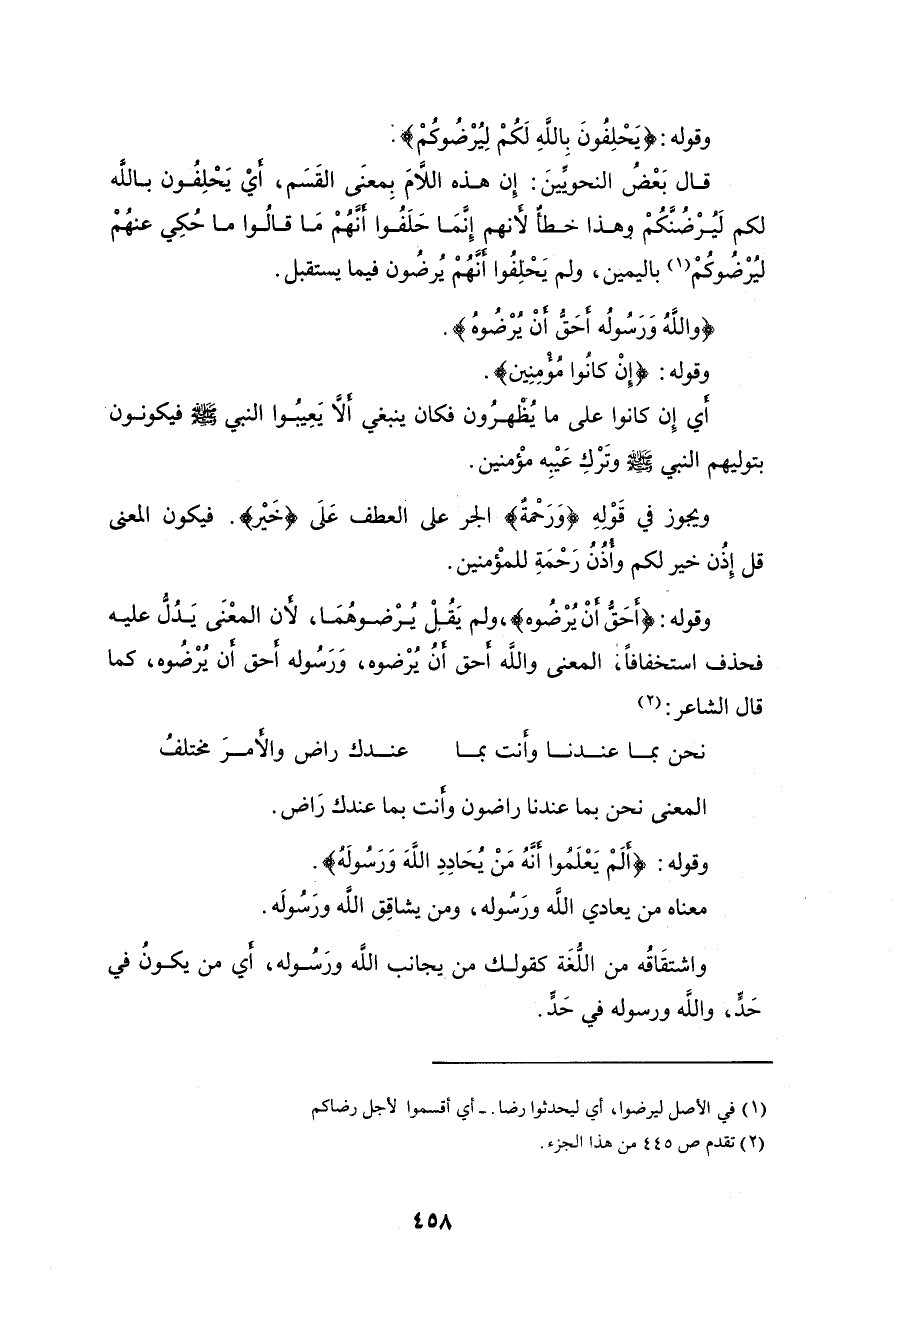 وقوله: ﴿يَحْلِفُونَ بِاللَّهِ لَكُمْ لِيُرْضُوكُمْ﴾.
قال بَعْضُ النحويِّينَ: إن هذه اللاَّمَ بِمعنَى القَسَم، أَيْ يَحْلِفُون باللَّه
لكم لَيُرْضُنَّكُمْ وهذا خطأٌ لأنهم إنَّمَا حَلَفُوا أَنَّهُمْ مَا قالُوا ما حُكِي عنهُمْ
ليُرْضُوكُمْ(١) باليمين، ولم يَحْلِفُوا أَنَّهُمْ يُرضُون فيما يستقبل.
﴿واللَّهُ وَرَسُولُه أَحَقُّ أَنْ يُرْضُوهُ﴾.
وقوله: ﴿إنْ كانُوا مُؤْمِنِين﴾.
أَي إن كانوا على ما يُظْهِرُون فكان ينبغي أَلَّا يَعِيبُوا النبي ﷺ فيكونون
بتوليهم النبي ﷺ وتَرْكِ عَيْبِه مؤْمنين.
ويجوز في قَوْلِهِ ﴿وَرَحْمَةٌ﴾ الجر على العطف عَلَى ﴿خَيْر﴾. فيكون المعنى
قل إذُن خير لكم وأُذُنُ رَحْمَةِ للمؤْمنين.
وقوله: ﴿أَحَقُّ أَنْ يُرْضُوه﴾، ولم يَقُلْ يُرْضوهُمَا، لأَن المعْنَى يَدُلُّ عليه
فحذف استخفافاً؛ المعنى واللَّه أَحق أَنُ يُرْضوه، وَرَسُوله أَحق أَن يُرْضُوه، كما
قال الشاعر:(٢)
نحن بما عندنا وأَنت بما عندك راض والأَمرَ مختلفُ
المعنى نحن بما عندنا راضون وأَنت بما عندك رَاض.
وقوله: ﴿أَلَمْ يَعْلَمُوا أَنَّهُ مَنْ يُحَادِدِ اللَّهَ وَرَسُولَهُ﴾.
معناه من يعادي اللَّه ورَسُوله، ومن يشاقِق اللَّه ورَسُولَه.
واشتقَاقُه من اللُّغَة كقولك من يجانب اللَّه ورَسُوله، أَي من يكونُ في
حَدٍّ، واللَّه ورسوله في حَدٍّ.
(١) في الأصل ليرضوا، أي ليحدثوا رضا.. ـ أي أقسموا لأجل رضاكم
(٢) تقدم ص ٤٤٥ من هذا الجزء.
٤٥٨